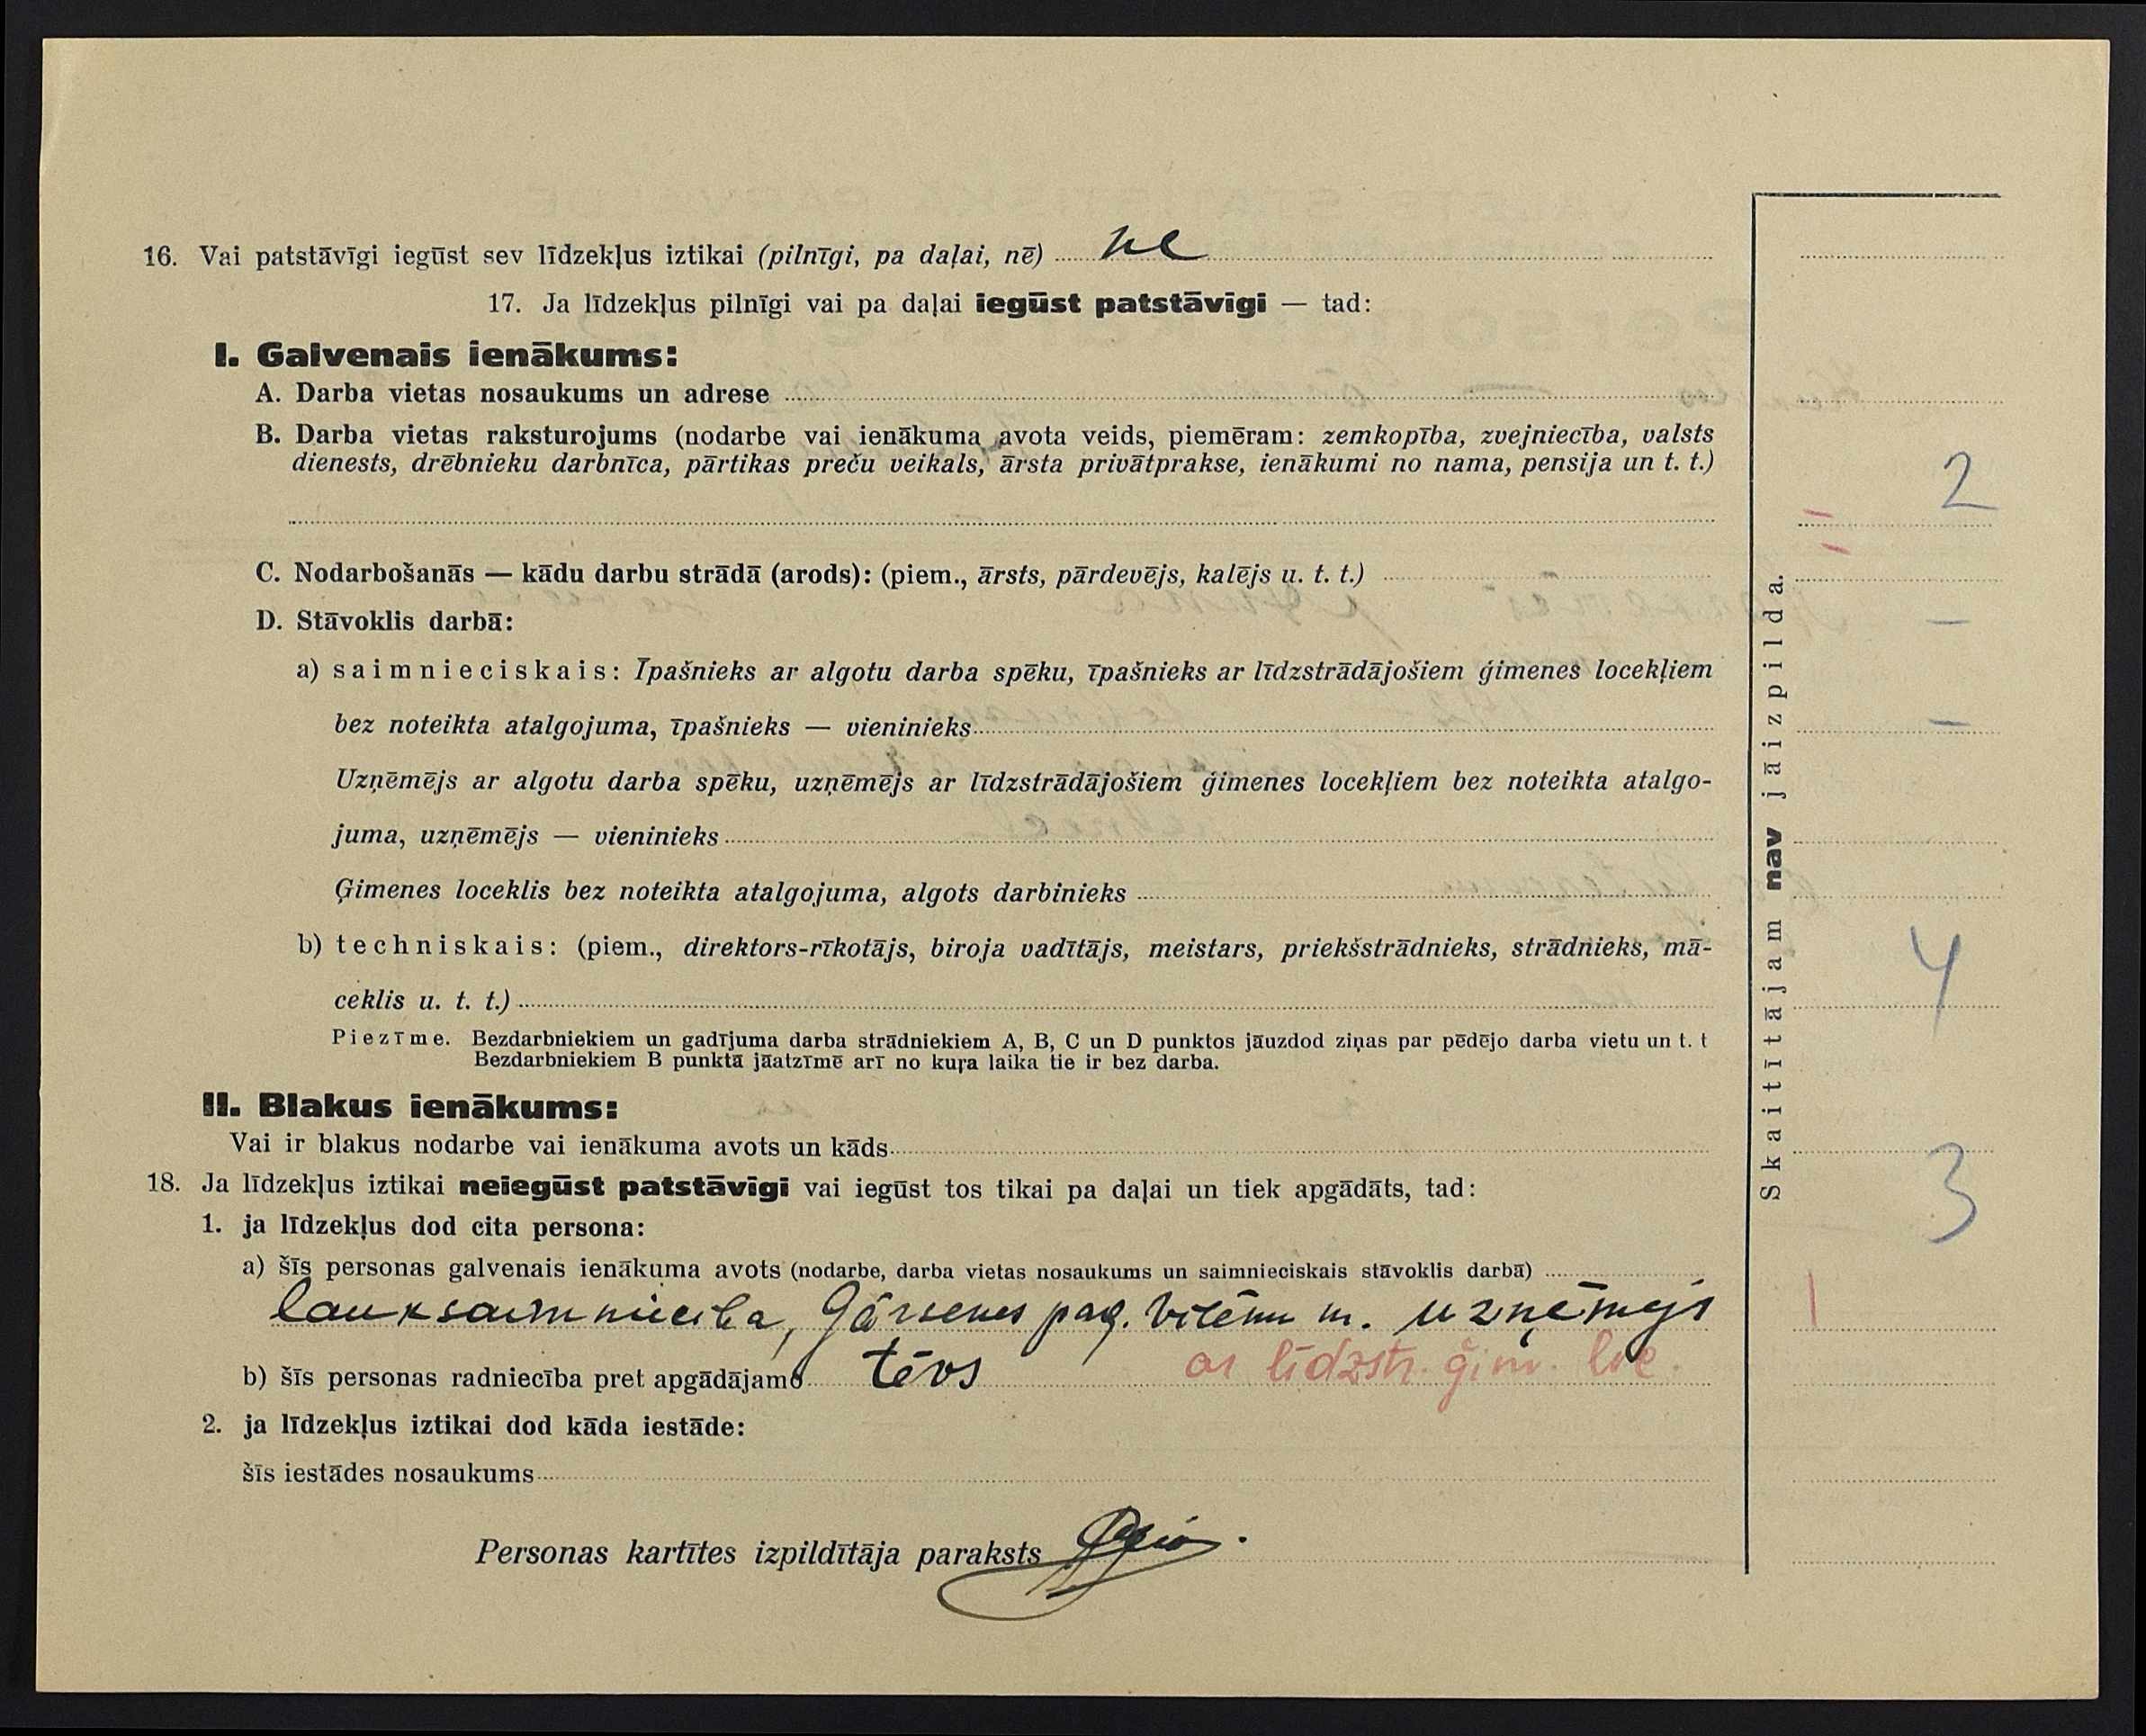 16. Vai patstāvīgi iegūst sev līdzekļus iztikai (pilnīgi, pa daļai, nē) ne
17. Ja līdzekļus pilnīgi vai pa daļai iegūst patstāvīgi — tad:
I. Galvenais ienākums:
A. Darba vietas nosaukums un adrese
B. Darba vietas raksturojums (nodarbe vai ienākuma avota veids, piemēram: zemkopība, zvejniecība, valsts
dienests, drēbnieku darbnīca, pārtikas preču veikals, ārsta privātprakse, ienākumi no nama, pensija un t. t.)
2
C. Nodarbošanās — kādu darbu strādā (arods): (piem., ārsts, pārdevējs, kalējs u. t. t.)
D. Stāvoklis darbā:
–
a) saimnieciskais: Īpašnieks ar algotu darba spēku, īpašnieks ar līdzstrādājošiem ģimenes locekļiem
bez noteikta atalgojuma, īpašnieks — vieninieks
–
Uzņēmējs ar algotu darba spēku, uzņēmējs ar līdzstrādājošiem ģimenes locekļiem bez noteikta atalgo-
juma, uzņēmējs — vieninieks
Ģimenes loceklis bez noteikta atalgojuma, algots darbinieks
b) techniskais: (piem., direktors-rīkotājs, biroja vadītājs, meistars, priekšstrādnieks, strādnieks, mā-
ceklis u. t. t.)
4
Piezīme. Bezdarbniekiem un gadījuma darba strādniekiem A, B, C un D punktos jāuzdod ziņas par pēdējo darba vietu un t. t
Bezdarbniekiem B punktā jāatzīmē arī no kuŗa laika tie ir bez darba.
II. Blakus ienākums:
Vai ir blakus nodarbe vai ienākuma avots un kāds
18. Ja līdzekļus iztikai neiegūst patstāvīgi vai iegūst tos tikai pa daļai un tiek apgādāts, tad:
3
1. ja līdzekļus dod cita persona:
a) šīs personas galvenais ienākuma avots (nodarbe, darba vietas nosaukums un saimnieciskais stāvoklis darbā)
lauksaimniecība, Gārsenes pag. m. uzņēmējs
b) šīs personas radniecība pret apgādājamo tēvs ar līdzstr. ģim. loc.
2. ja līdzekļus iztikai dod kāda iestāde:
šīs iestādes nosaukums
Personas kartītes izpildītāja paraksts
Skaitītājam nav jāizpilda.